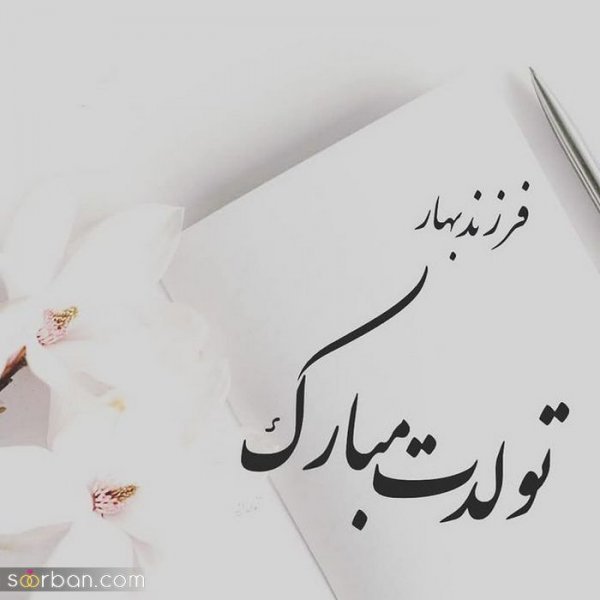 فرزند بهار
تولدت مبارک
soorban.com